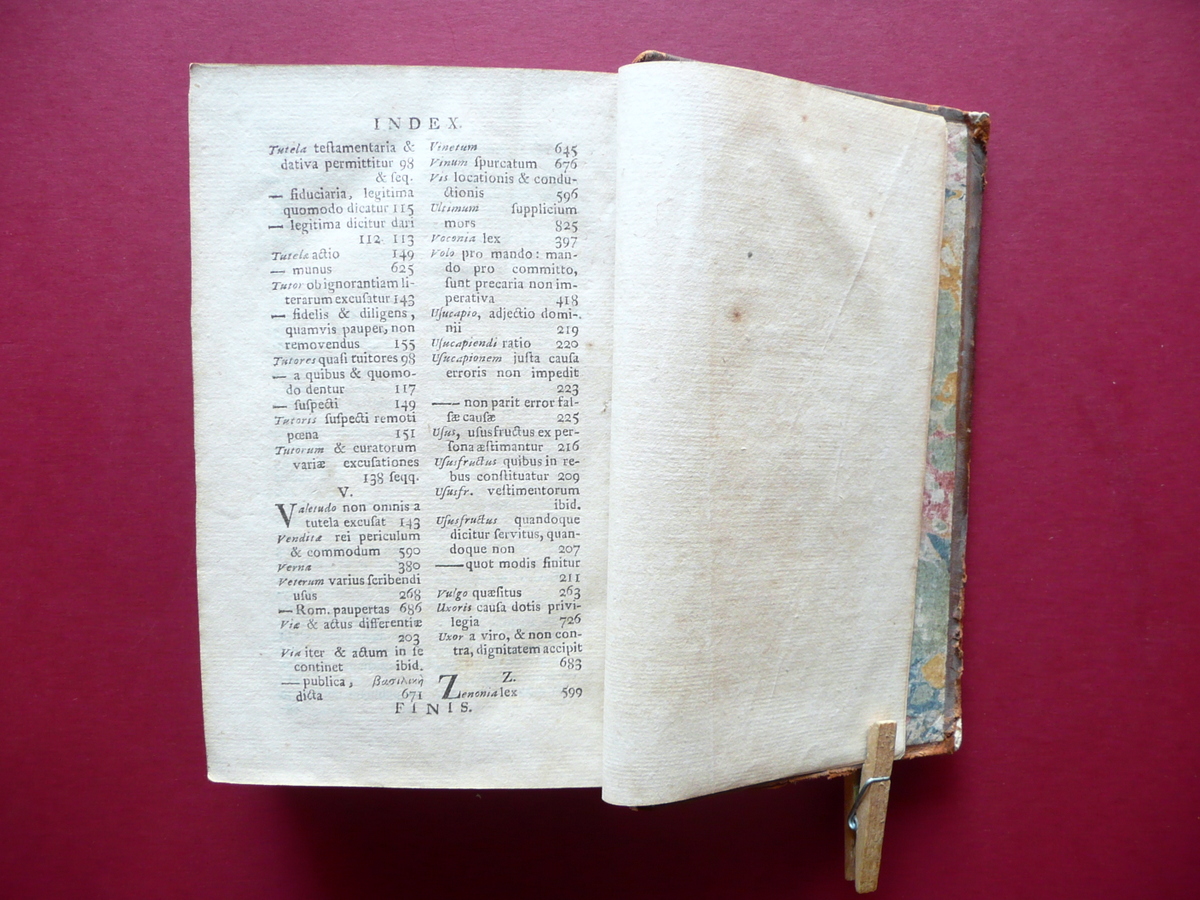 INDEX.
Tutela teſtamentaria &
dativa permittitur 98
& ſeq.
— fiduciaria, legitima
quomodo dicatur 115
— legitima dicitur dari
112 113
Tutelæ actio 149
— munus 625
Tutor ob ignorantiam li-
terarum excuſatur 143
— fidelis & diligens,
quamvis pauper, non
removendus 155
Tutores quaſi tuitores 98
— a quibus & quomo-
do dentur 117
— ſuſpecti 149
Tutoris ſuſpecti remoti
pœna 151
Tutorum & curatorum
variæ excuſationes
138 ſeqq.
V.
Valetudo non omnis a
tutela excuſat 143
Venditæ rei periculum
& commodum 590
Verna 380
Veterum varius ſcribendi
uſus 268
— Rom. paupertas 686
Viæ & actus differentiæ
203
Via iter & actum in ſe
continet ibid.
— publica, βασιλικὴ
dicta 671
Vinetum 645
Vinum ſpurcatum 676
Vis locationis & condu-
ctionis 596
Ultimum ſupplicium
mors 825
Voconia lex 397
Volo pro mando: man-
do pro committo,
ſunt precaria non im-
perativa 418
Uſucapio, adjectio domi-
nii 219
Uſucapiendi ratio 220
Uſucapionem juſta cauſa
erroris non impedit
223
— non parit error fal-
ſæ cauſæ 225
Uſus, uſusfructus ex per-
ſona æſtimantur 216
Uſusfructus quibus in re-
bus conſtituatur 209
Uſusfr. veſtimentorum
ibid.
Uſusfructus quandoque
dicitur ſervitus, quan-
doque non 207
— quot modis finitur
211
Vulgo quæſitus 263
Uxoris cauſa dotis privi-
legia 726
Uxor a viro, & non con-
tra, dignitatem accipit
683
Z.
Zenonia lex 599
FINIS.